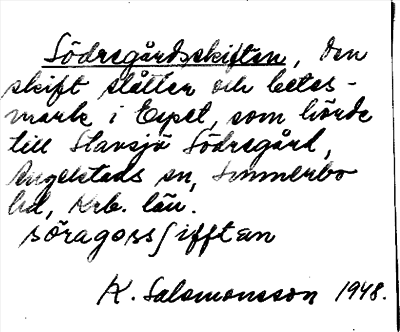 Södregårdsskiften, den
skift slåtter och betes-
mark i Espet, som hörde
till Slavsjö Södregård,
Angelstads sn, Sunnerbo
hd, Krb. län.
söragossʃifftan
K. Salomonsson 1948.